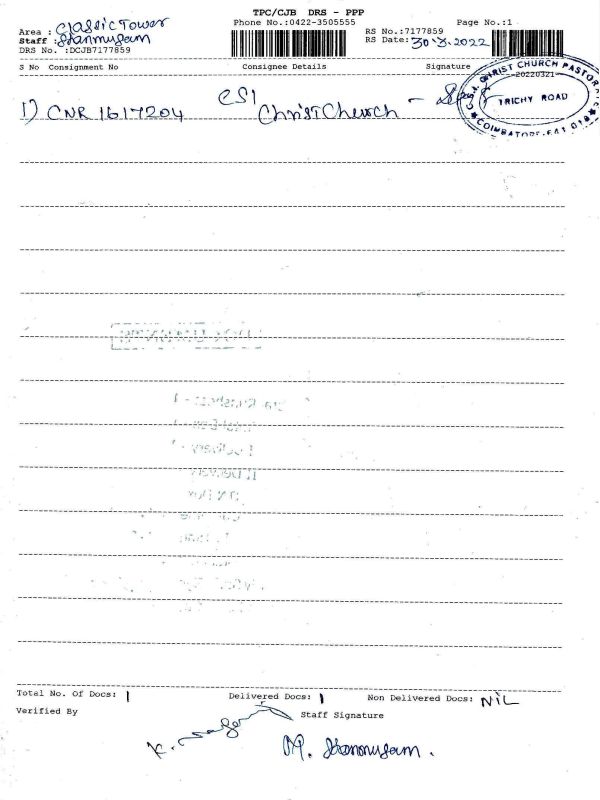 TPC/CJB DRS - PPP
Phone No.:0422-3505555
Page No.:1
Area : Classic Tower
Staff : Shanmugam
DRS No. :DCJB7177859
RS No.:7177859
RS Date: 30.3.2022
S No Consignment No Consignee Details Signature
C.S.I. CHRIST CHURCH PASTORATE
20220321
TRICHY ROAD
COIMBATORE-641 018
1) CNR 1617204 CSI Christ Church -
Total No. Of Docs: 1 Delivered Docs: 1 Non Delivered Docs: NIL
Verified By Staff Signature
M. Shanmugam.